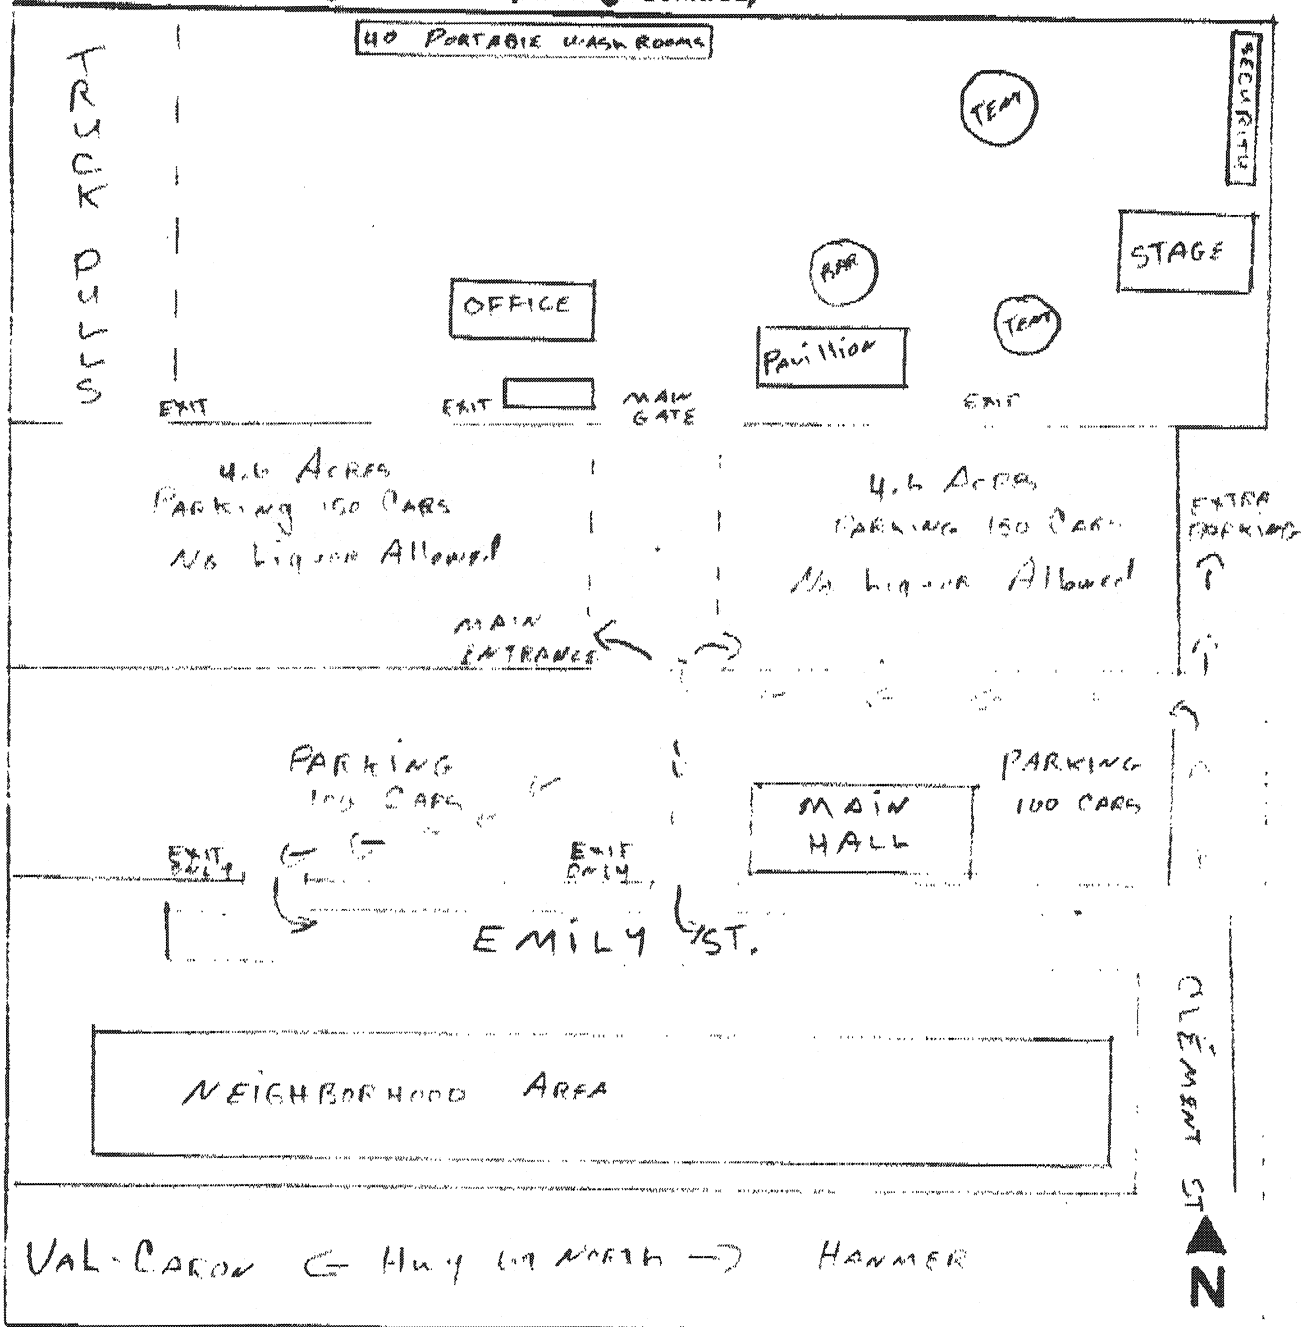 40 PORTABLE WASH ROOMS
TRUCK PULLS
TENT
SECURITY
STAGE
BAR
OFFICE
TENT
Pavillion
EXIT
EXIT
MAIN
GATE
EXIT
4.6 ACRES
PARKING 150 CARS
No Liquor Allowed
4.6 ACRES
PARKING 150 CARS
No Liquor Allowed
EXTRA
PARKING
MAIN
ENTRANCE
PARKING
100 CARS
MAIN
HALL
PARKING
100 CARS
EXIT
ONLY
EXIT
ONLY
EMILY ST.
CLÉMENT ST
NEIGHBORHOOD AREA
VAL-CARON ← Hwy 69 NORTH → HANMER
N